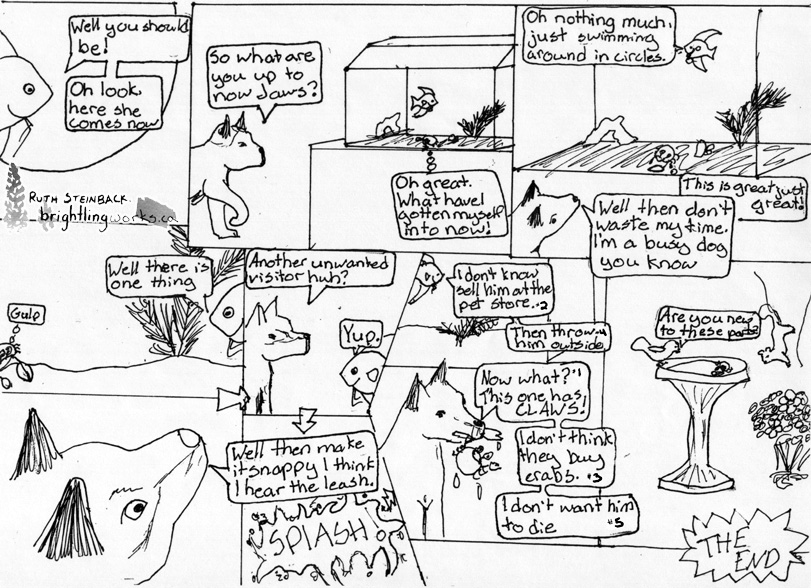 Well you should
be!
Oh look,
here she
comes now
So what are
you up to
now Jaws?
Oh great.
What have I
gotten myself
into now!
Oh nothing much,
just swimming
around in circles.
This is great just
great!
Well then don't
waste my time.
I'm a busy dog
you know
RUTH STEINBACK.
brightlingworks.ca
Gulp
Well there is
one thing
Another unwanted
visitor huh?
Yup.
Well then make
it snappy I think
I hear the leash.
SPLASH
I don't know
sell him at the
pet store. #2
Then throw
him outside
Now what? #1
This one has
CLAWS!
I don't think
they buy
crabs. #3
I don't want him
to die #5
Are you new
to these parts?
THE
END